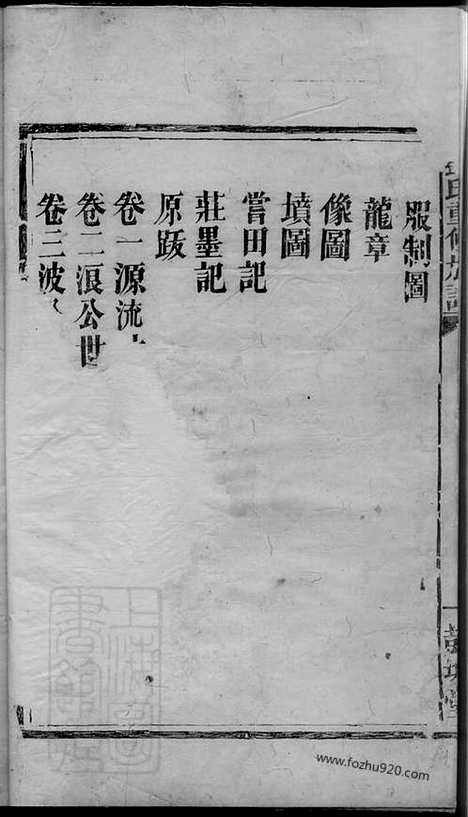 服制圖
龍章
像圖
墳圖
嘗田記
莊墨記
原跋
卷一源流
卷二浪公世
卷三波
氏重修族譜
www.fozhu920.com